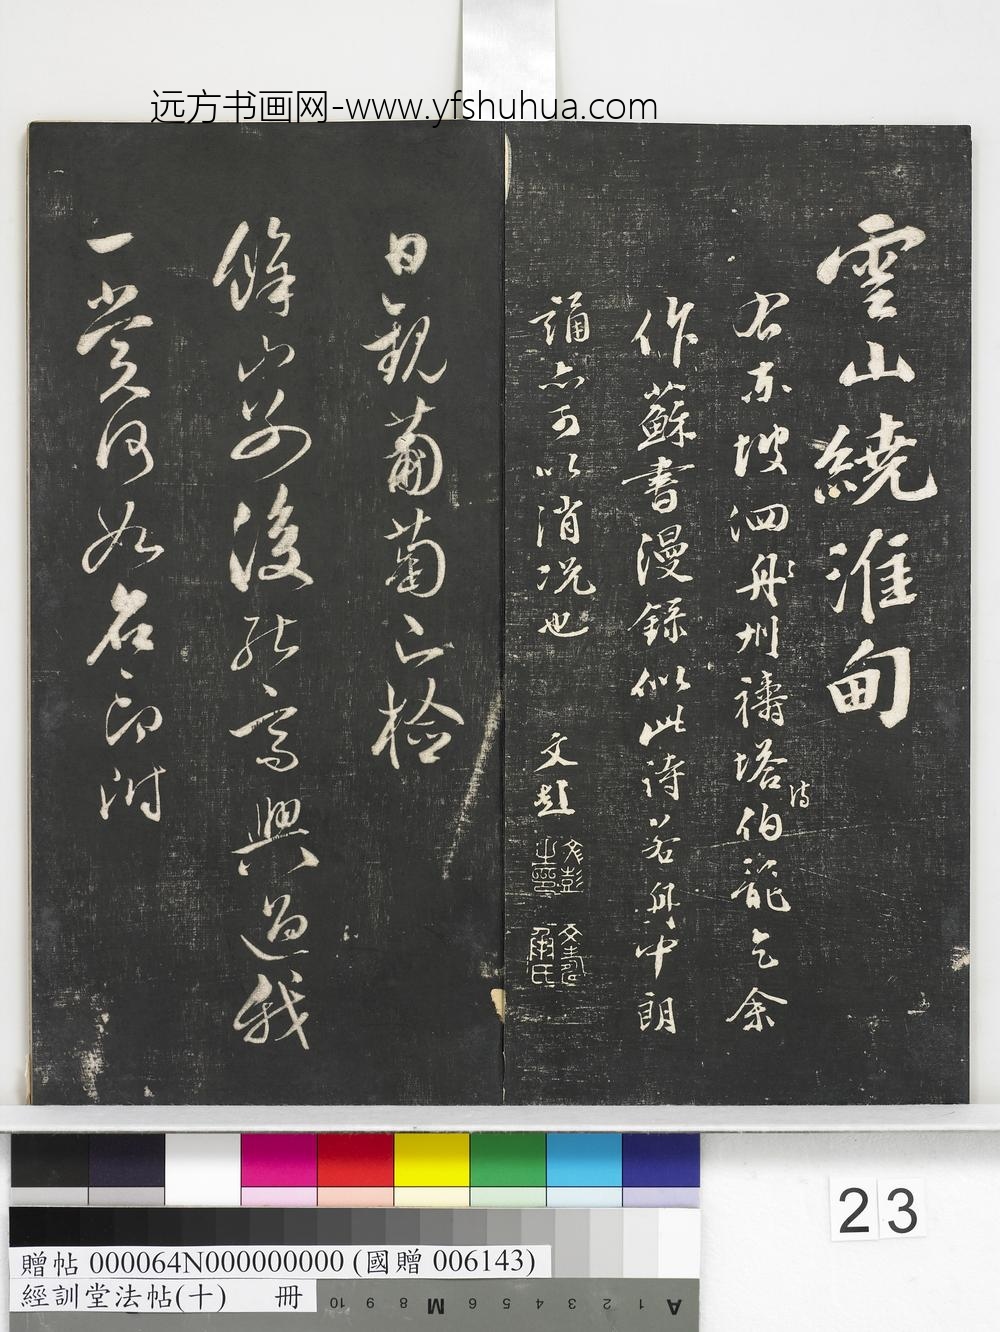 远方书画网-www.yfshuhua.com
雲山繞淮甸
右東坡泗舟州禱塔伯龍乞余
詩
作蘇書漫錄似此詩若舟中朗
誦亦可以消況也
文彭
文彭之印
文壽承氏
日觀葡萄已檢
餘山前後能高興過我
一賞何如名印附
23
贈帖 000064N000000000 (國贈 006143)
經訓堂法帖(十) 冊
10 9 8 M 6 5 4 3 2 1 A